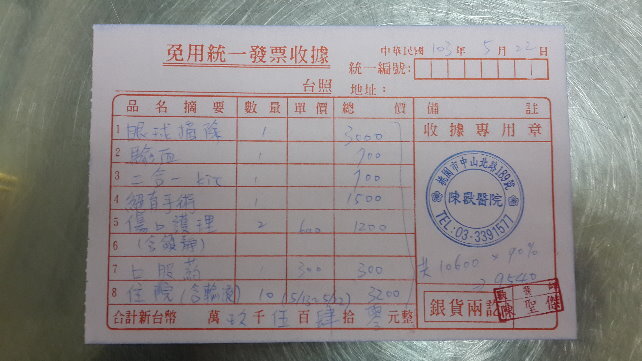 免用統一發票收據
中華民國 103 年 5 月 22 日
統一編號: 1
台照 地址:
品名摘要 數量 單價 總價 備註
1 眼球摘除 1 3000
收據專用章
2 驗血 1 700
3 二合一 kit 1 700
4 1 1500
5 傷口護理 2 600 1200
6
7 口服藥 1 300 300
8 住院 10 (5/13~5/22) 3200
桃園市中山北路189號
陳獸醫院
TEL:03-3391577
共 10600 × 90%
9540
銀貨兩訖
陳聖傑
合計新台幣 萬 玖 千 伍 百 肆 拾 零 元整